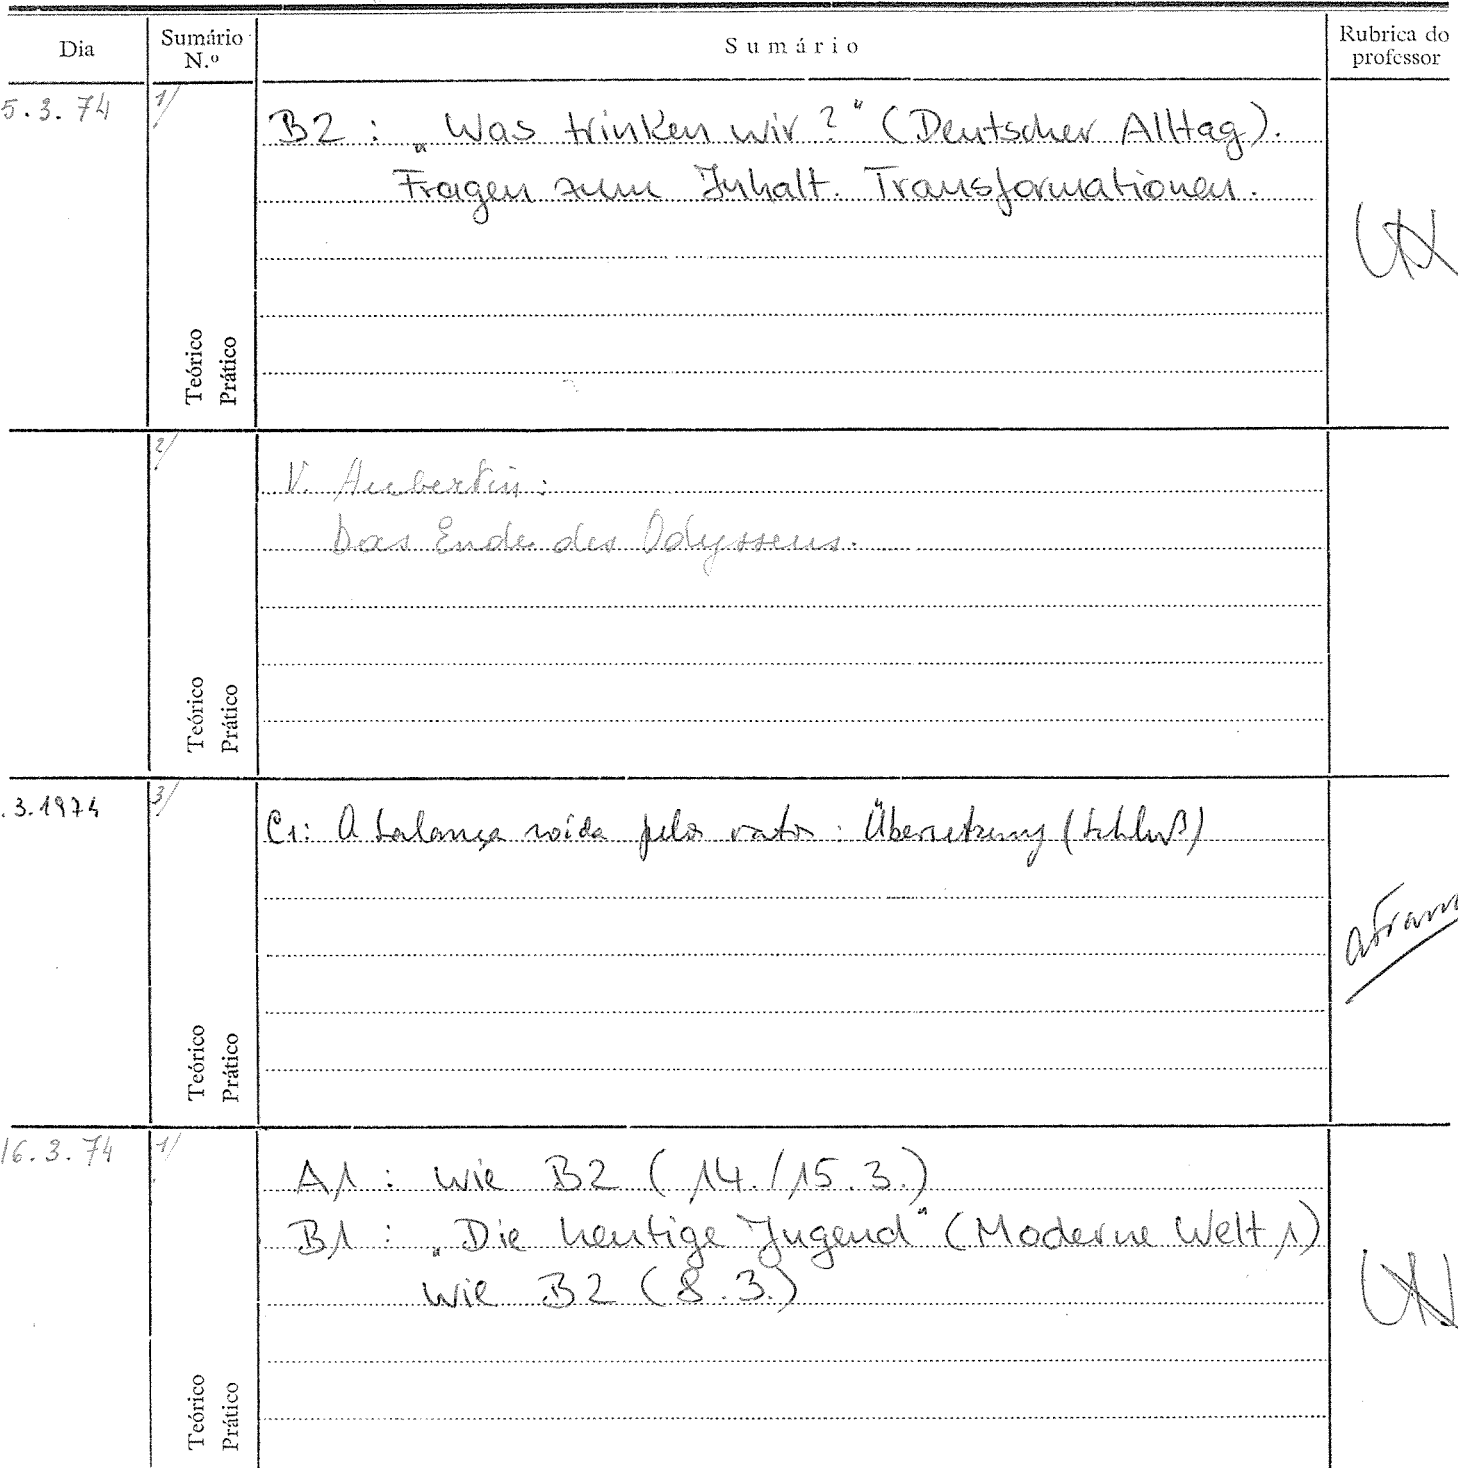 Dia
Sumário N.º
Sumário
Rubrica do professor
5.3.74
1/
B2 : „Was trinken wir?“ (Deutscher Alltag).
Fragen zum Inhalt. Transformationen.
Teórico
Prático
2/
V. Aubertin:
Das Ende des Odysseus.
Teórico
Prático
.3.1974
3/
C1: A balança roída pelos ratos : Übersetzung (Schluß)
Teórico
Prático
16.3.74
1/
A1 : wie B2 (14./15.3.)
B1 : „Die heutige Jugend“ (Moderne Welt 1)
wie B2 (8.3.)
Teórico
Prático